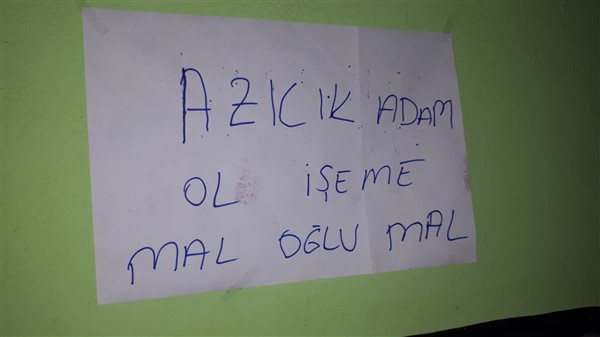 AZICIK ADAM
OL İŞEME
MAL OĞLU MAL